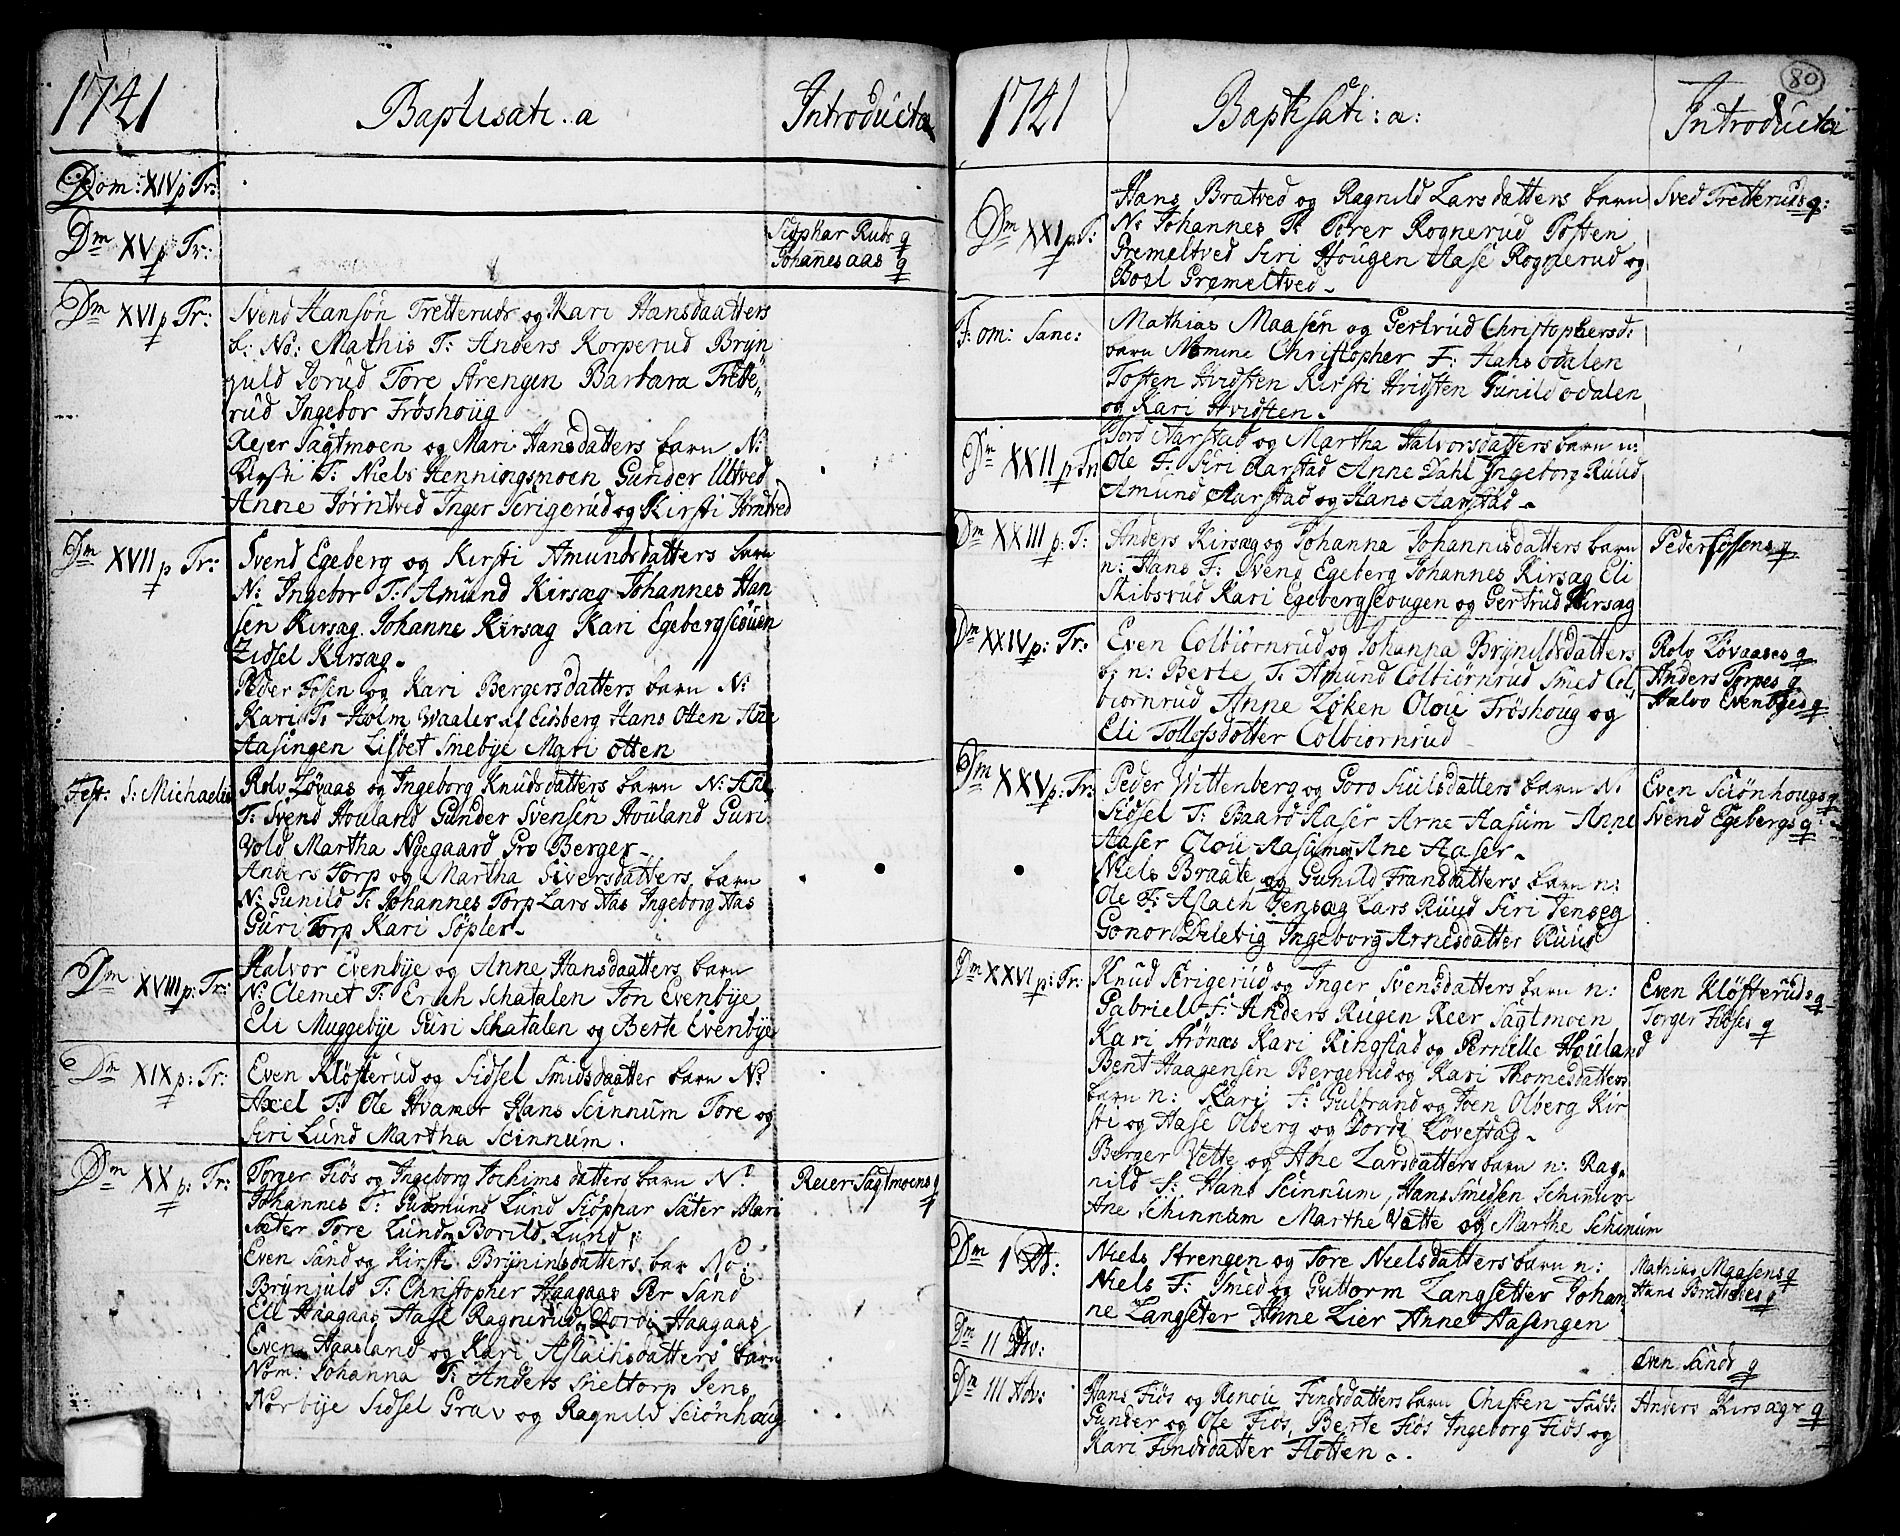 1741
Baptisati . a
Introducta
Dom: XIV p Tr:
Dm XV p Tr:
Siøphar Ruds q
Johanes aas q
Dm XVI p Tr:
Svend Hansøn Tretteruds og Kari Hansdaatters
b: No: Mathis T: Anders Korperud Bryn
guld Dorud Tore Arengen Barbara Trette,
rud Ingebor Frøshoug
Rejer Sagtmoen og Mari Hansdatters barn N:
Kirsti T: Niels Henningsmoen Gunder Utved
Anne Tørntved Inger Serigerud og Kirsti Tørntved
Dm XVII p Tr:
Svend Egeberg og Kirsti Amundsdatters barn
N: Ingebor T: Amund Kirsæg Johannes Han
sen Kirsæg Johanne Kirsæg Kari Egebergseouen
Zidsel Kirsæg.
Peder Fosen og Kari Bergersdatters barn N:
Kari T: Holm Waaler af Eidsberg Hans Otten Ane
Aasingen Lisbet Smebye Mari Otten
Fest: S: Michaelis
Rolv Løvaas og Ingeborg Knudsdatters barn N: Ane
T: Svend Houland Gunder Svensen Houland Guri
Vold Martha Nøegaard Gro Berger
Anders Torp og Martha Siversdatters barn
N: Gunild T: Johannes Torp Lars Aas Ingeborg Aas
Guri Torp Kari Søpler.
Dm XVIII p: Tr:
Halvor Evenbye og Anne Hansdaatters barn
N: Clemet T: Erich Schatalen Jon Evenbye
Eli Muggebye Guri Schatalen og Berte Evenbye
Dm XIX p: Tr:
Even Kløfterud og Sidsel Smidsdaatter barn N:
Axel T: Ole Hvamer Hans Scinnum Tore og
Siri Lund Martha Scinnum.
Dm XX p: Tr:
Torger Fiøs og Ingeborg Jochims datters barn N:
Johannes T: Gudmund Lund Siøphar Sæter Mari
Sæter Tore Lund Borild Lund
Reier Sagtmoens q
Even Sand og Kirsti Bryninlsdatters bar No:
Brynjuld T: Christopher Haagaas Per Sand
Eli Haagaas Aase Ragnerud Dordi Haagaas
Even Haasland og Kari Aslachsdatters barn
Nom: Johanna T: Anders Sneltorp Jens
Norbye Sidsel Grav og Ragnild Sciønhaug
1741
Baptisati: a:
Introducta
80
Dm XXI p. T:
Hans Bratved og Ragnild Larsdatters barn
N: Johannes T: Torer Rognerud Tosten
Premeltved Siri Hougen Aase Rognerud og
Boel Præmeltved.
Sved Tretteruds q:
F: om: Sanc:
Mathias Maasen og Gertrud Christophersd:
barn Nomine Christopher F: Hans Odalen
Tosten Hvidsten Kirsti Hvidsten Gunild Odalen
og Kari Hvidsten.
Dm XXII p Tr
Tord Aarstad og Martha Halvorsdatters barn n:
Ole F: Siri Aarstad Anne Dahl Ingeborg Ruud
Amund Aarstad og Hans Aarstad
Dm XXIII p: T:
Anders Kirsæg og Johanna Johannisdatters barn
n: Hans F: Svend Egeberg Johannes Kirsæg Eli
Skibsrud Kari Egebergseougen og Gertrud Kirsæg
Peder Fossens q
Dm XXIV p: Tr:
Even Colbiørnrud og Johanna Brynildsdatters
b: n: Berte T: Amund Colbiørnrud Smed Col
biørnrud Anne Løken Olou Frøshoug og
Eli Tollefsdotter Colbiørnrud
Rolv Løvaases q
Anders Torpes q
Halvo Evenbyes q
Dm XXV p: Tr:
Peder Wittenberg og Goro Siulsdatters barn N:
Sidsel T: Baard Aaser Arne Aasum Anne
Aaser Olou Aasum og Ane Aaser.
Niels Braate og Gunild Fransdatters barn n:
Ole F: Aslach Jensæg Lars Ruud Siri Jensæg
Gonor Dilevig Ingeborg Arnesdatter Ruud
Even Sciønhougs q
Svend Egebergs q
Dm XXVI p: Tr:
Knud Serigerud og Inger Svensdatters barn n:
Gabriel F: Anders Riigen Reer Sagtmoen
Kari Arønæs Kari Ringstad og Pernille Houland
Bent Haagensen Bergerud og Kari Thomesdatters
barn n: Kari F: Gulbrand og Joen Olberg Kir
sti og Aase Olberg og Dordi Løvestad
Berger Vette og Ane Larsdatters barn n: Rag,
nild F: Hans Scinnum, Hans Smedsen Schinnum
Ane Schinnum Marthe Vette og Marthe Schinum
Even Kløfteruds q
Torger Fiøses q
Dm I Ad:
Niels Strengen og Tore Nielsdatters barn n:
Niels F: Smed og Guttorm Langsetter Johan
ne Langseter Anne Lier Anne Aasengen
Mathias Maasens q
Hans Bratvedes q
Dm II Adv:
Even Sands q
Dm III Adv:
Hans Fiøs og Ronou Findsdatters barn Chisten Fadd:
Gunder og Ole Fiøs, Berte Fiøs Ingeborg Fiøs og
Kari Findsdatter Flotten.
Anders Kirsæger q